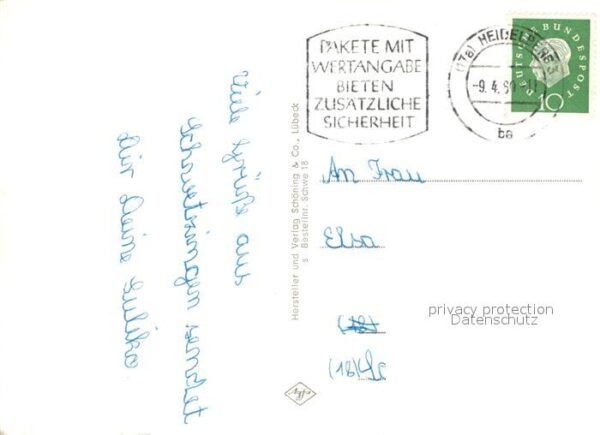 PAKETE MIT
WERTANGABE
BIETEN
ZUSÄTZLICHE
SICHERHEIT
(17a) HEIDELBERG 3
-9. 4.
ba
DEUTSCHE BUNDESPOST
10
Viele Grüße aus
Schwetzingen sendet
dir Deine
Hersteller und Verlag Schöning & Co., Lübeck
s Bestellnr. Schwe 18
An Frau
Elsa
privacy protection
Datenschutz
(18)